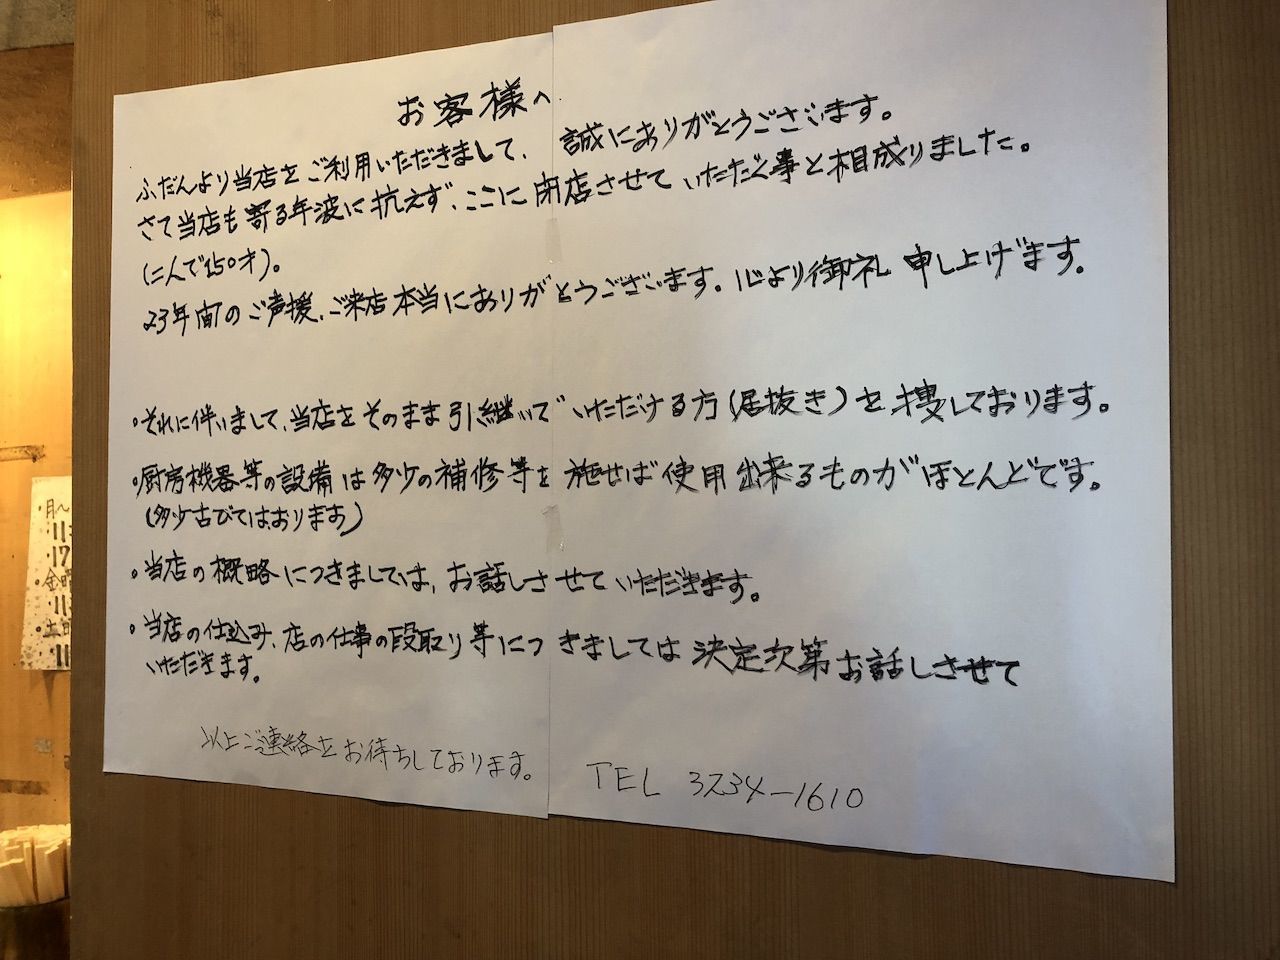 お客様へ
ふだんより当店をご利用いただきまして、誠にありがとうございます。
さて当店も寄る年波に抗えず、ここに閉店させていただく事と相成りました。
(二人で150才)。
23年間のご声援、ご来店本当にありがとうございます。心より御礼申し上げます。
・それに伴いまして、当店をそのまま引継いでいただける方(居抜き)を捜しております。
・厨房機器等の設備は多少の補修等を施せば使用出来るものがほとんどです。
(多少古びてはおります)
・当店の概略につきましては、お話しさせていただきます。
・当店の仕込み、店の仕事の段取り等につきましては決定次第お話しさせて
いただきます。
以上ご連絡をお待ちしております。 TEL 3234-1610
・月〜
11:
17
・金曜
11:
・土日
11